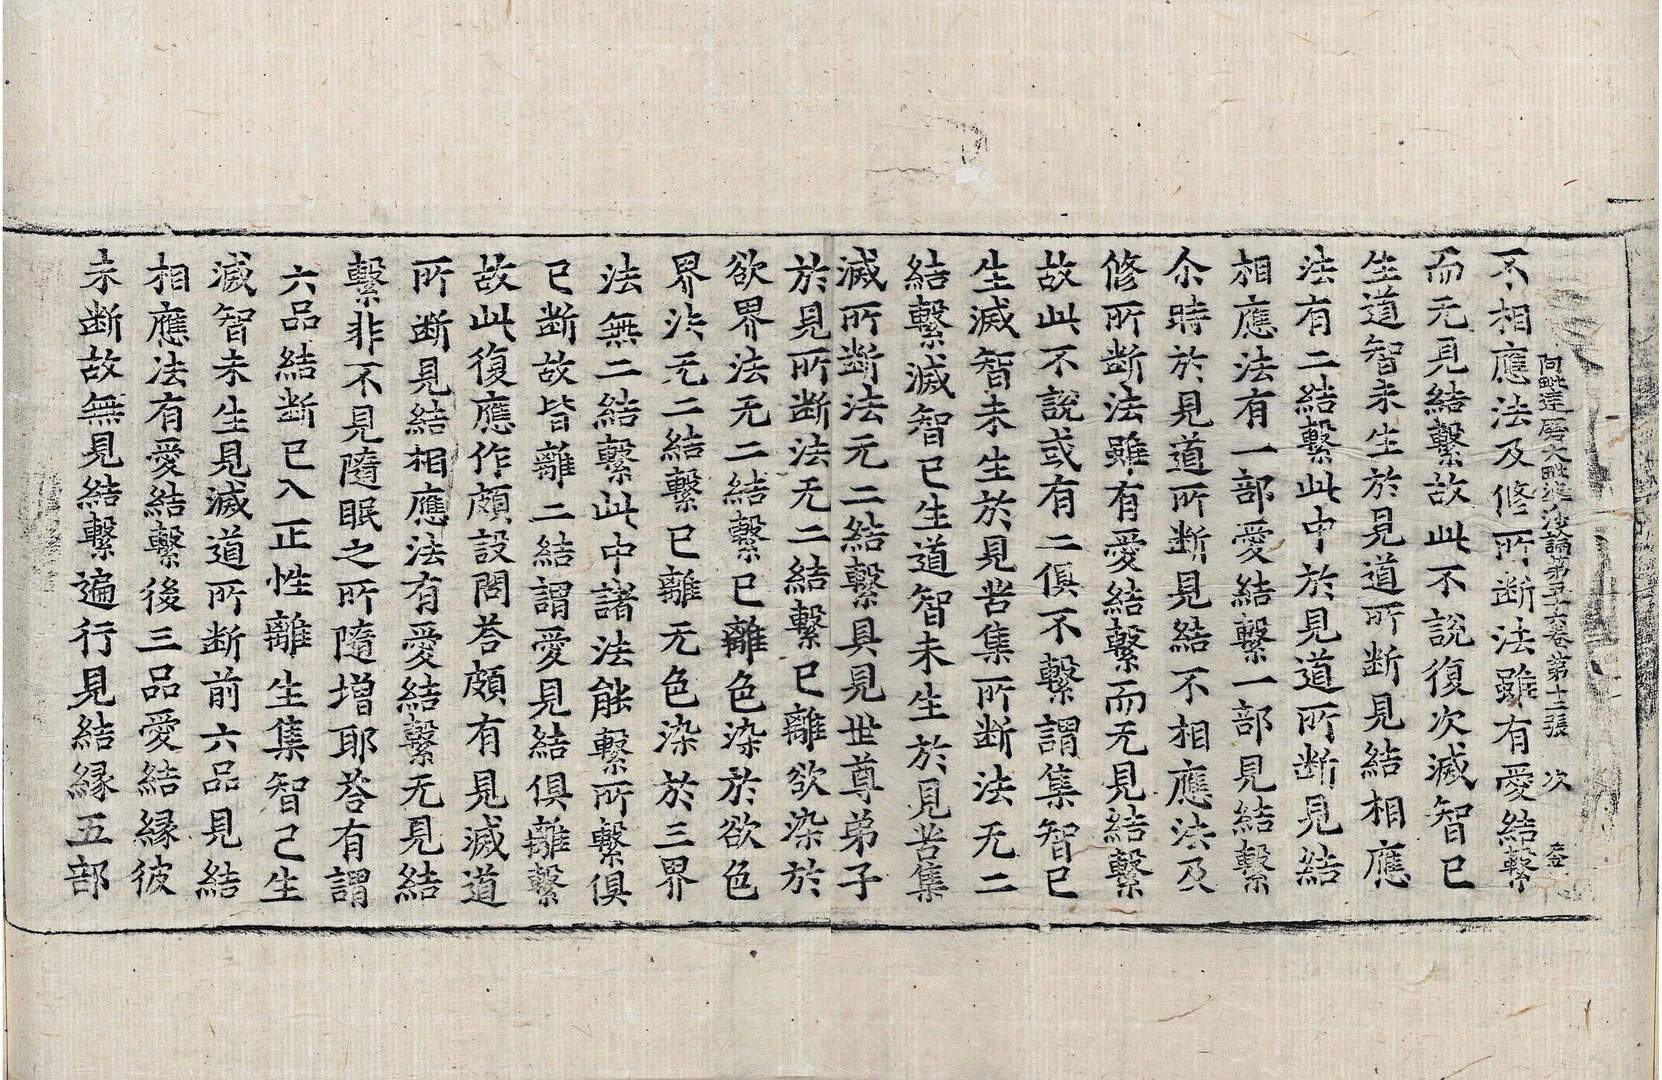 阿毗達磨大毗婆沙論第五十六卷第十二張 次
不相應法及修所斷法雖有愛結繫
而无見結繫故此不說復次滅智已
生道智未生於見道所斷見結相應
法有二結繫此中於見道所斷見結
相應法有一部愛結繫一部見結繫
尒時於見道所斷見結不相應法及
修所斷法雖有愛結繫而无見結繫
故此不說或有二俱不繫謂集智已
生滅智未生於見苦集所斷法无二
結繫滅智已生道智未生於見苦集
滅所斷法无二結繫具見世尊弟子
於見所斷法无二結繫已離欲染於
欲界法无二結繫已離色染於欲色
界法无二結繫已離无色染於三界
法無二結繫此中諸法能繫所繫俱
已斷故皆離二結謂愛見結俱離繫
故此復應作頗設問荅頗有見滅道
所斷見結相應法有愛結繫无見結
繫非不見隨眠之所隨增耶荅有謂
六品結斷已入正性離生集智已生
滅智未生見滅道所斷前六品見結
相應法有愛結繫後三品愛結緣彼
未斷故無見結繫遍行見結緣五部